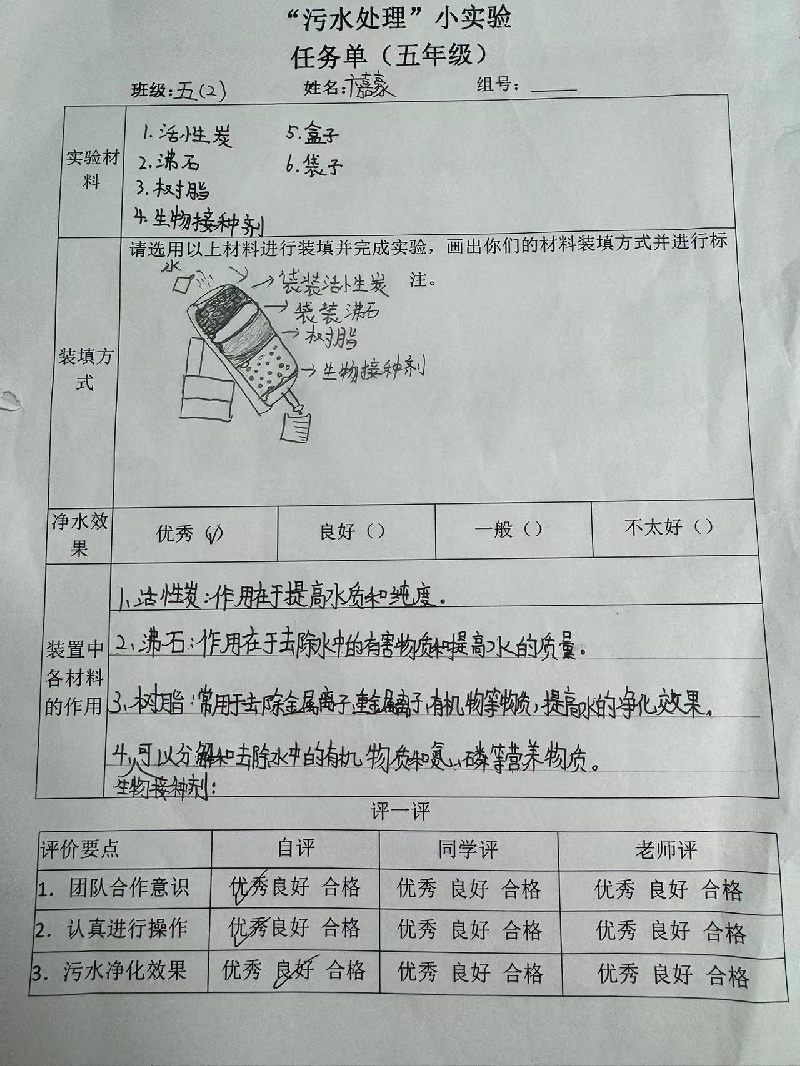 “污水处理”小实验
任务单（五年级）
班级:五(2) 姓名:卞嘉豪 组号：
实验材料
1.活性炭 5.盒子
2.沸石 6.袋子
3.树脂
4.生物接种剂
装填方式
请选用以上材料进行装填并完成实验，画出你们的材料装填方式并进行标
注。
水
→袋装活性炭
→袋装沸石
→树脂
→生物接种剂
净水效果
优秀（√） 良好（） 一般（） 不太好（）
装置中各材料的作用
1.活性炭:作用在于提高水质和纯度.
2.沸石:作用在于去除水中的有害物质和提高水的质量.
3.树脂:常用于去除金属离子,重金属离子,有机物等物质,提高水的净化效果.
4.可以分解和去除水中的有机物质和氨、磷等营养物质。
生物接种剂:
评一评
评价要点 自评 同学评 老师评
1. 团队合作意识 优秀 良好 合格 优秀 良好 合格 优秀 良好 合格
2. 认真进行操作 优秀 良好 合格 优秀 良好 合格 优秀 良好 合格
3. 污水净化效果 优秀 良好 合格 优秀 良好 合格 优秀 良好 合格